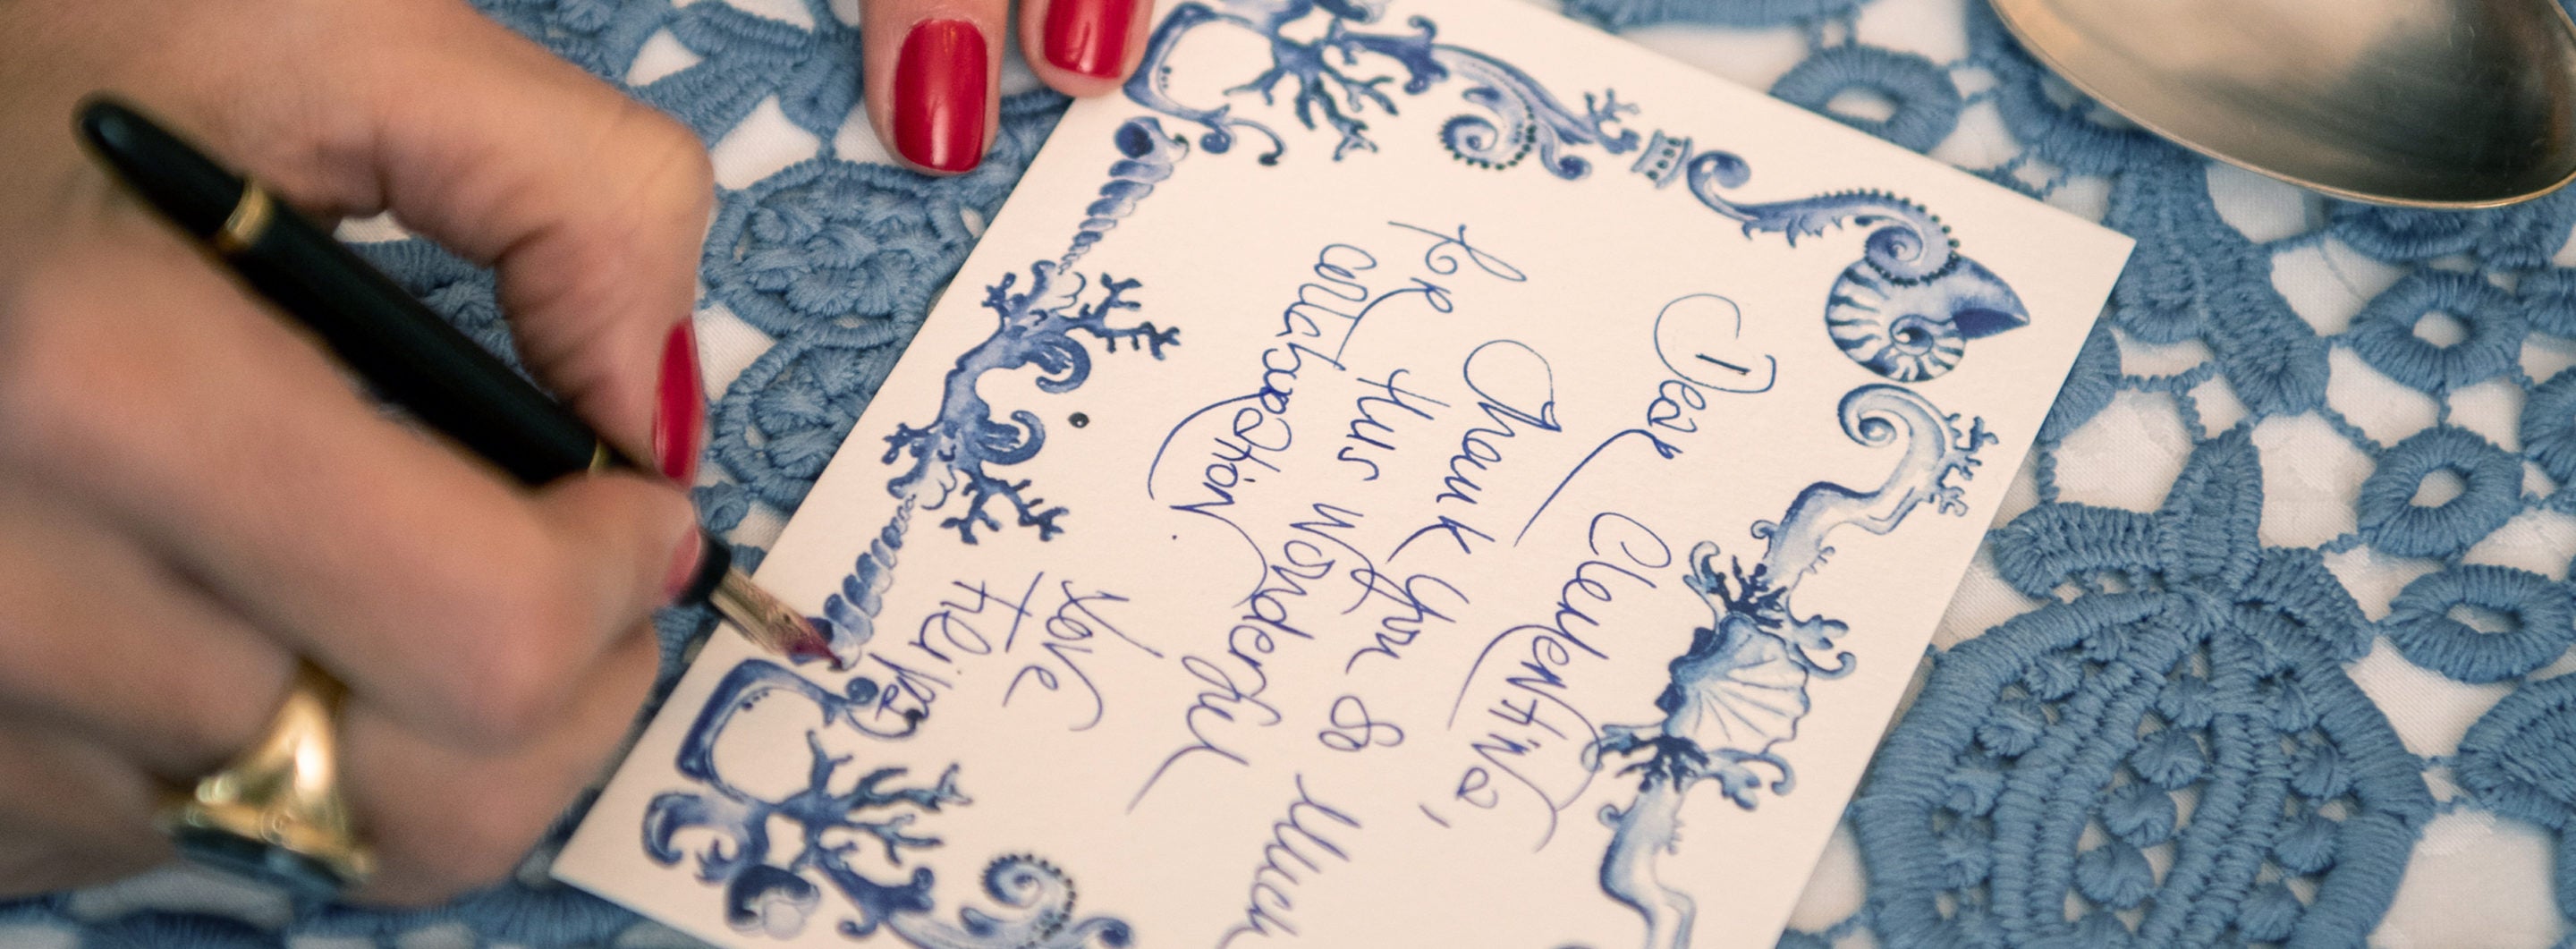 Dear Clementina,
Thank you so much
for this wonderful
collaboration.
Love